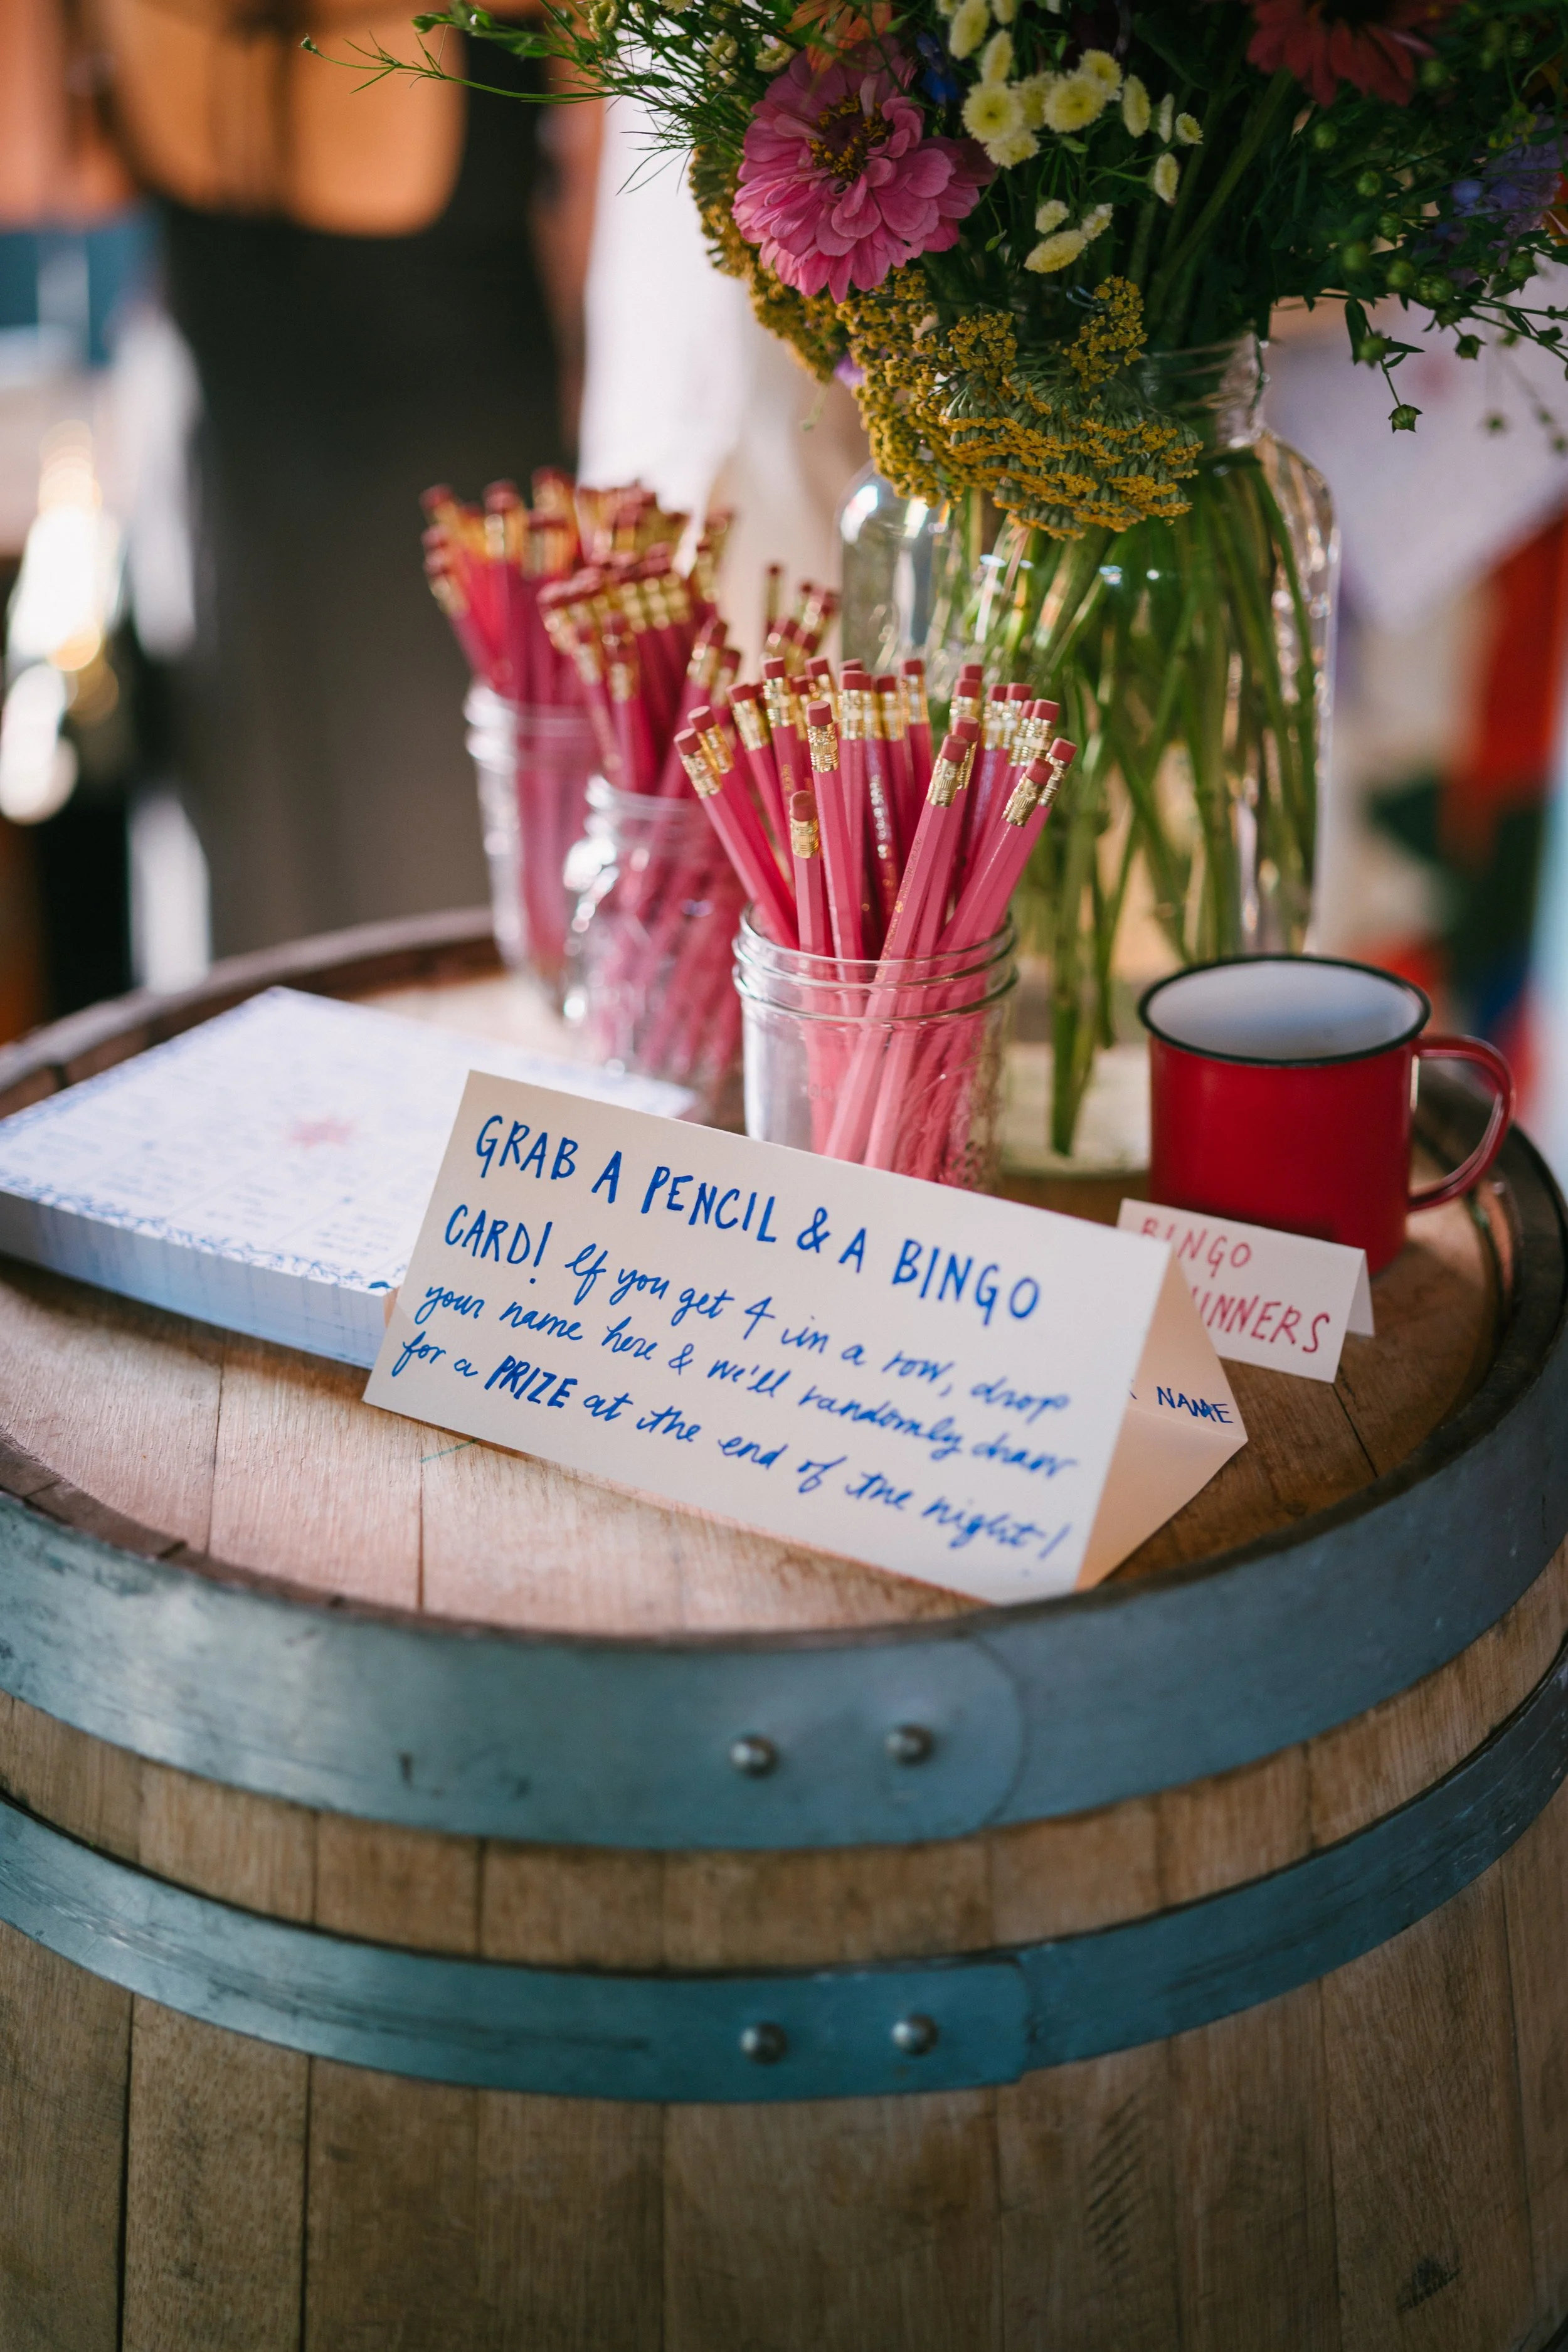 GRAB A PENCIL & A BINGO
CARD! If you get 4 in a row, drop
your name here & we'll randomly draw
for a PRIZE at the end of the night!
BINGO
NAME